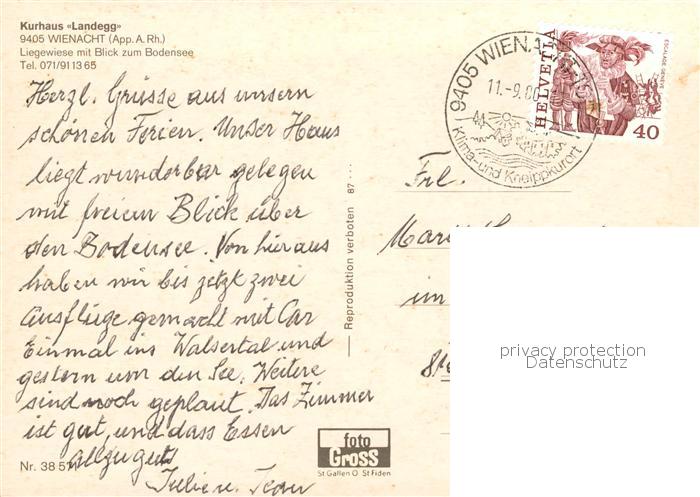 Kurhaus «Landegg»
9405 WIENACHT (App. A. Rh.)
Liegewiese mit Blick zum Bodensee
Tel. 071/91 13 65
Herzl. Grüsse aus unsern
schönen Ferien. Unser Haus
liegt wunderbar gelegen
mit freiem Blick über
den Bodensee. Von hier aus
haben wir bis jetzt zwei
Ausflüge gemacht mit Car
Einmal ins Walsertal und
gestern um den See. Weitere
sind noch geplant. Das Zimmer
ist gut, und dass Essen
allzu gut
Nr. 38 57
Julie u. Jean
Reproduktion verboten 87
foto
GROSS
St Gallen O St Fiden
9405 WIENA
11.-9.80
Klima- und Kneippkurort
HELVETIA
ESCALADE GENÈVE
40
Frl.
im
privacy protection
Datenschutz